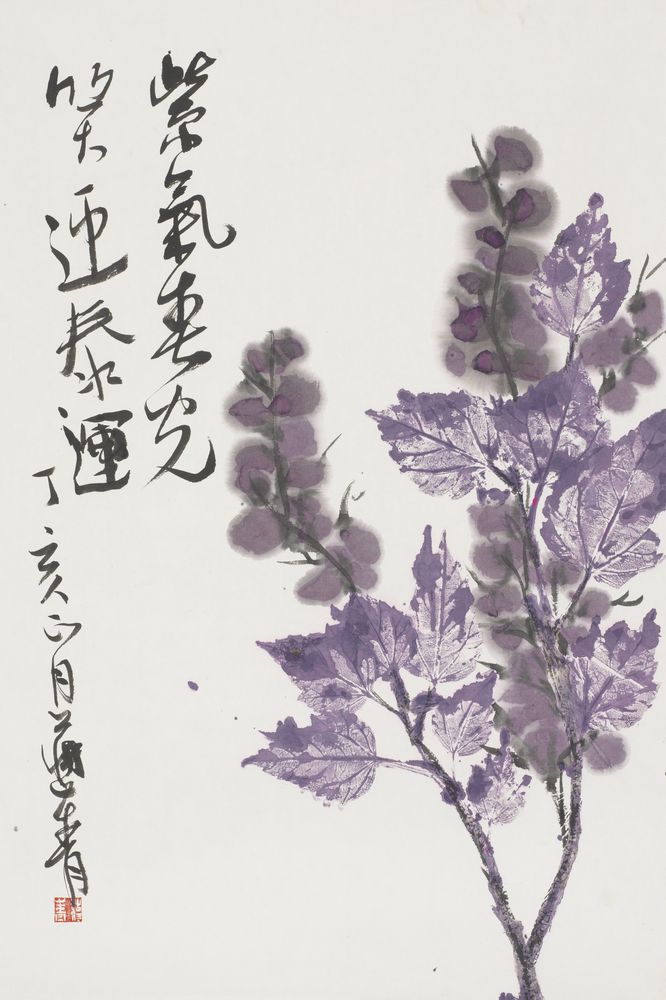 紫氣春光
笑迎泰運
丁亥正月